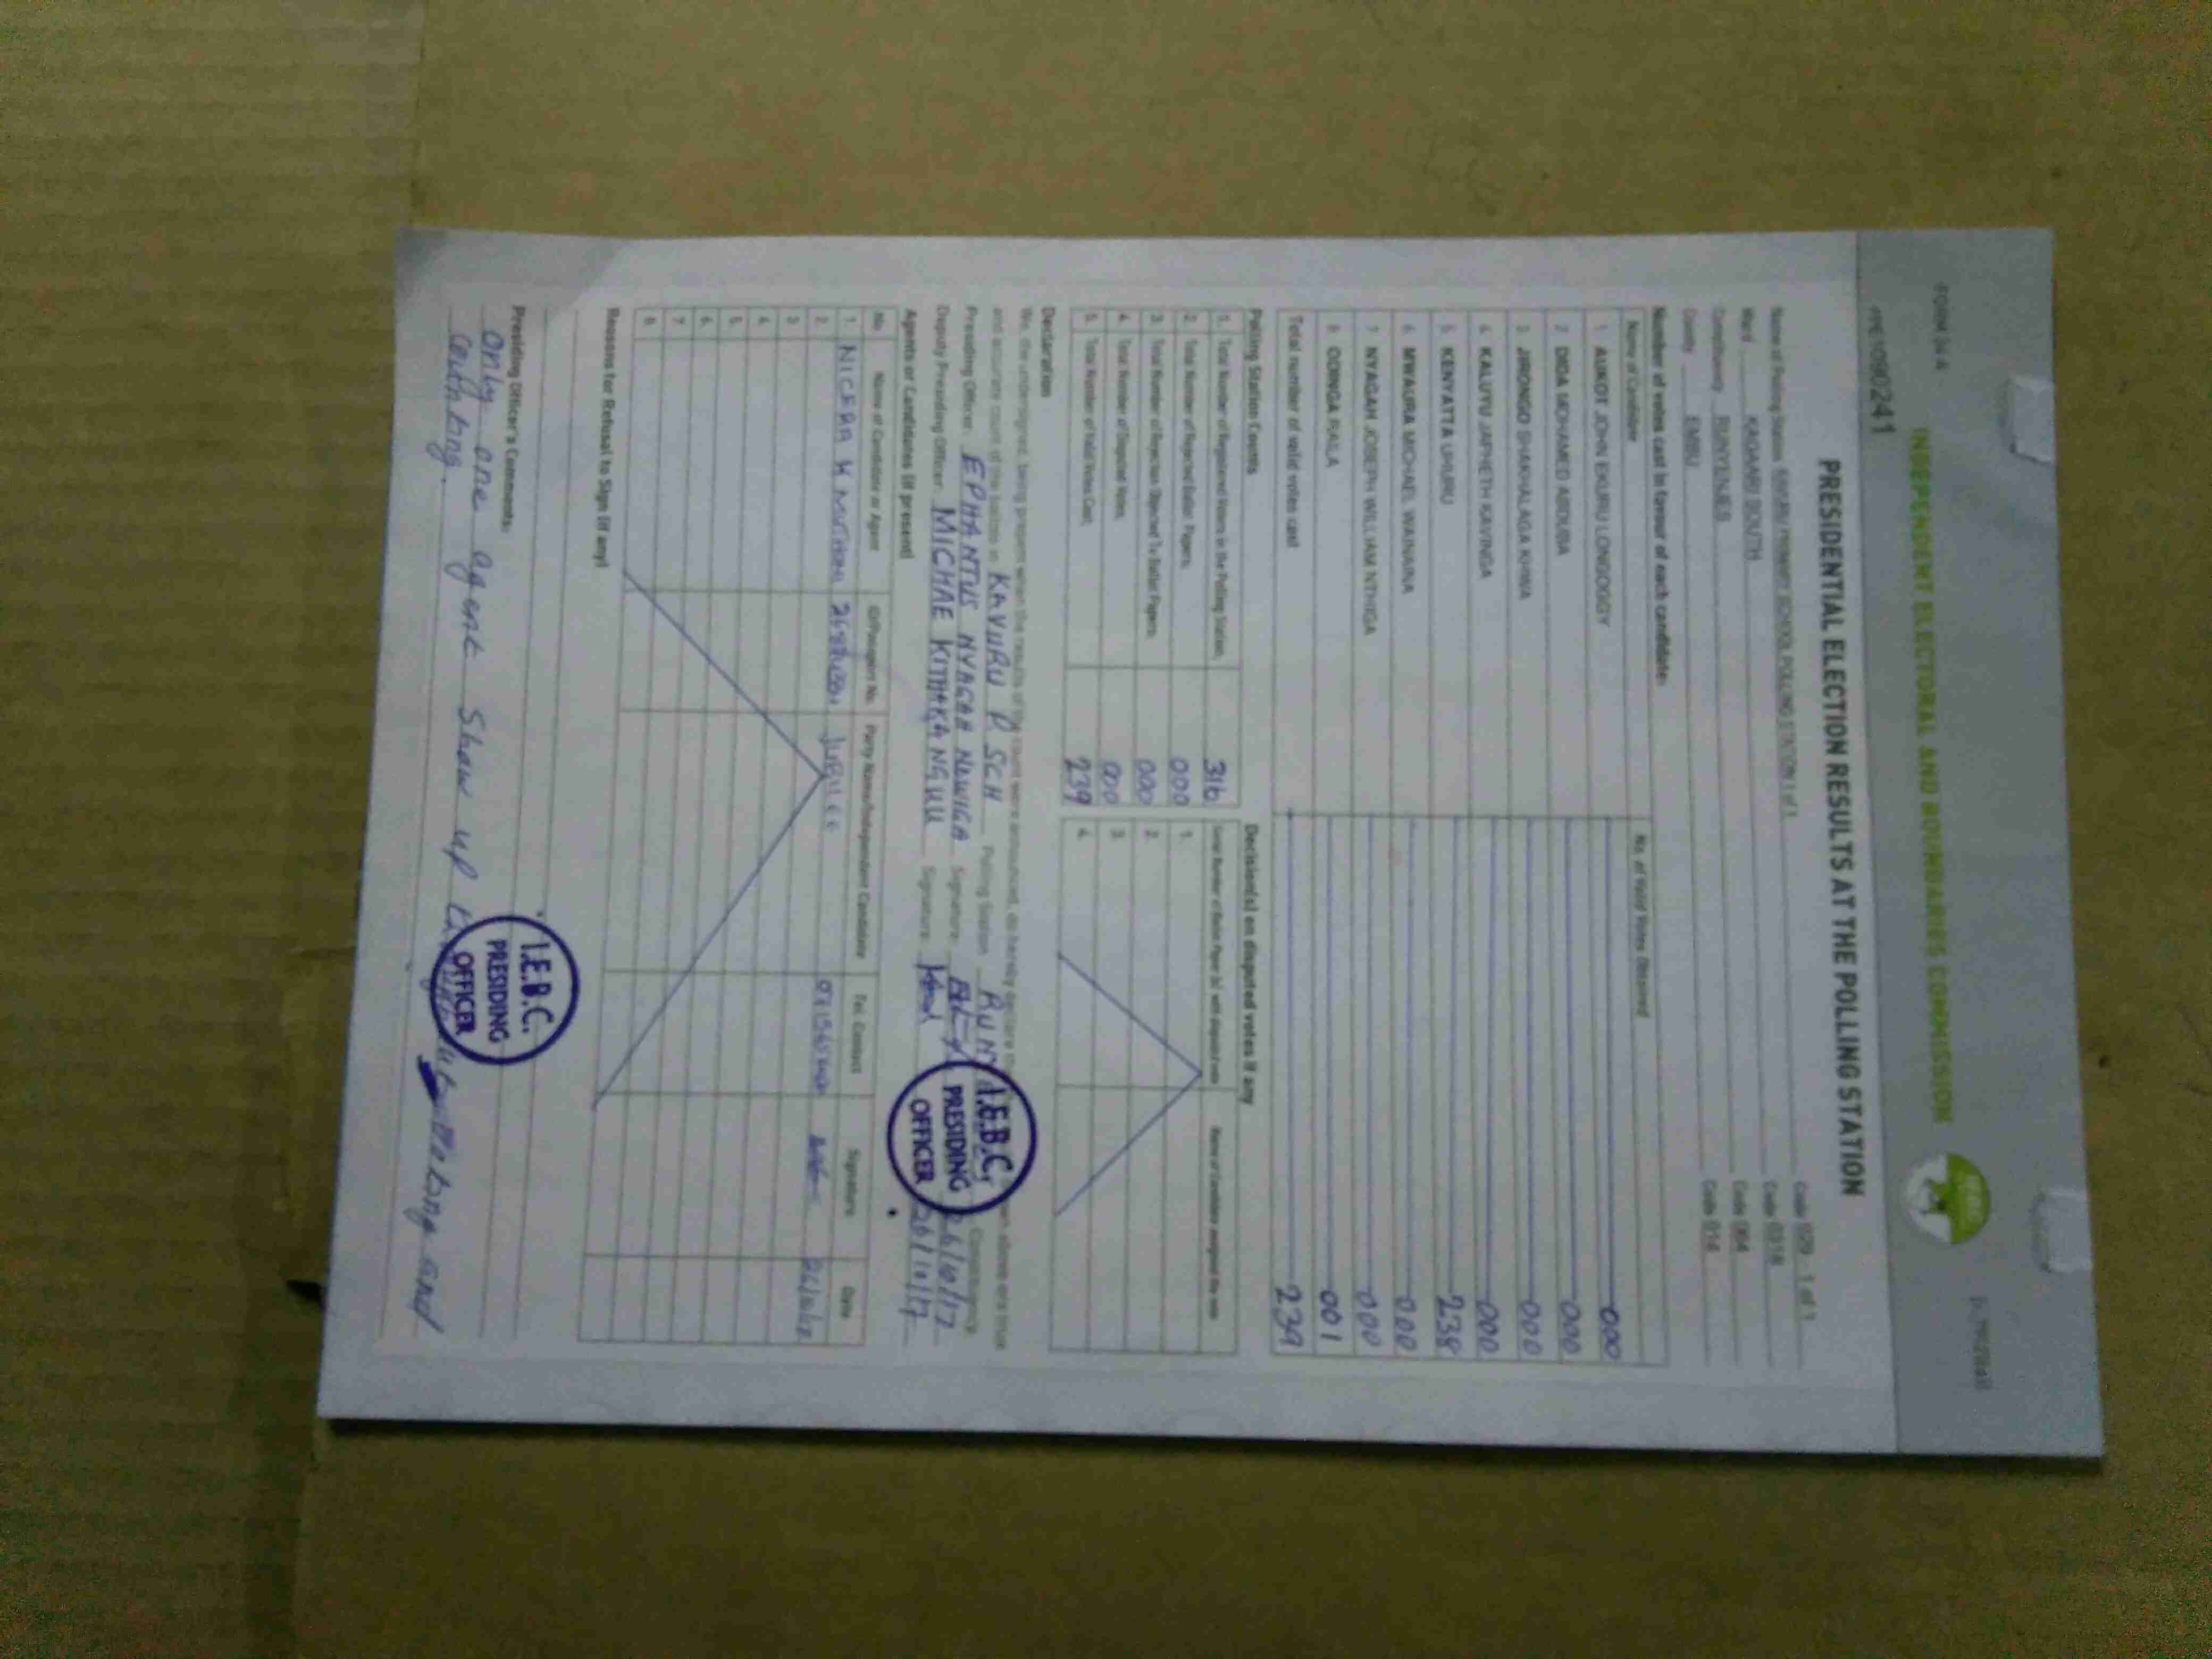 FORM 34 A
INDEPENDENT ELECTORAL AND BOUNDARIES COMMISSION
PRESIDENTIAL ELECTION RESULTS AT THE POLLING STATION
Name of Polling Station PRIMARY SCHOOL POLLING STATION 1 of 1 Code 029 1 of 1
Ward KAGAARI SOUTH Code 0318
Constituency RUNYENJES Code 064
County EMBU Code 014
Number of votes cast in favour of each candidate:
Name of Candidate No. of Valid Votes Obtained
1 AUKOT JOHN EKURU LONGOGGY 000
2 DIDA MOHAMED ABDUBA 000
3 JIRONGO SHAKHALAGA KHWA 000
4 KALUYU JAPHETH KAVINGA 000
5 KENYATTA UHURU 238
6 MWAURA MICHAEL WAINAINA 000
7 NYAGAH JOSEPH WILLIAM NTHIGA 000
8 ODINGA RAILA 001
Total number of valid votes cast 239
Polling Station Counts
1. Total Number of Registered Voters in the Polling Station 316
2. Total Number of Rejected Ballot Papers 000
3. Total Number of Rejection Objected To Ballot Papers 000
4. Total Number of Disputed Votes 000
5. Total Number of Valid Votes Cast 239
Decision(s) on disputed votes if any
Serial Number of Ballot Paper (s) with disputed vote Name of Candidate assigned the vote
1.
2.
3.
4.
Declaration
We, the undersigned, being present when the results of the count were announced, do hereby declare
and accurate count of the ballots in KAVURU P SCH Polling Station Constituency
Presiding Officer EPHANTUS NYAGAH Signature 26/10/17
Deputy Presiding Officer MICHAE KITHAKA NGUU Signature 26/10/17
I.E.B.C.
PRESIDING
OFFICER
Agents or Candidates (if present)
No. Name of Candidate or Agent ID/Passport No. Party Name/Independent Candidate Tel. Contact Signature Date
1. JUBILEE
2.
3.
4.
5.
6.
7.
8.
Reasons for Refusal to Sign (if any)
Presiding Officer's Comments:
only one agent Show up and
I.E.B.C.
PRESIDING
OFFICER